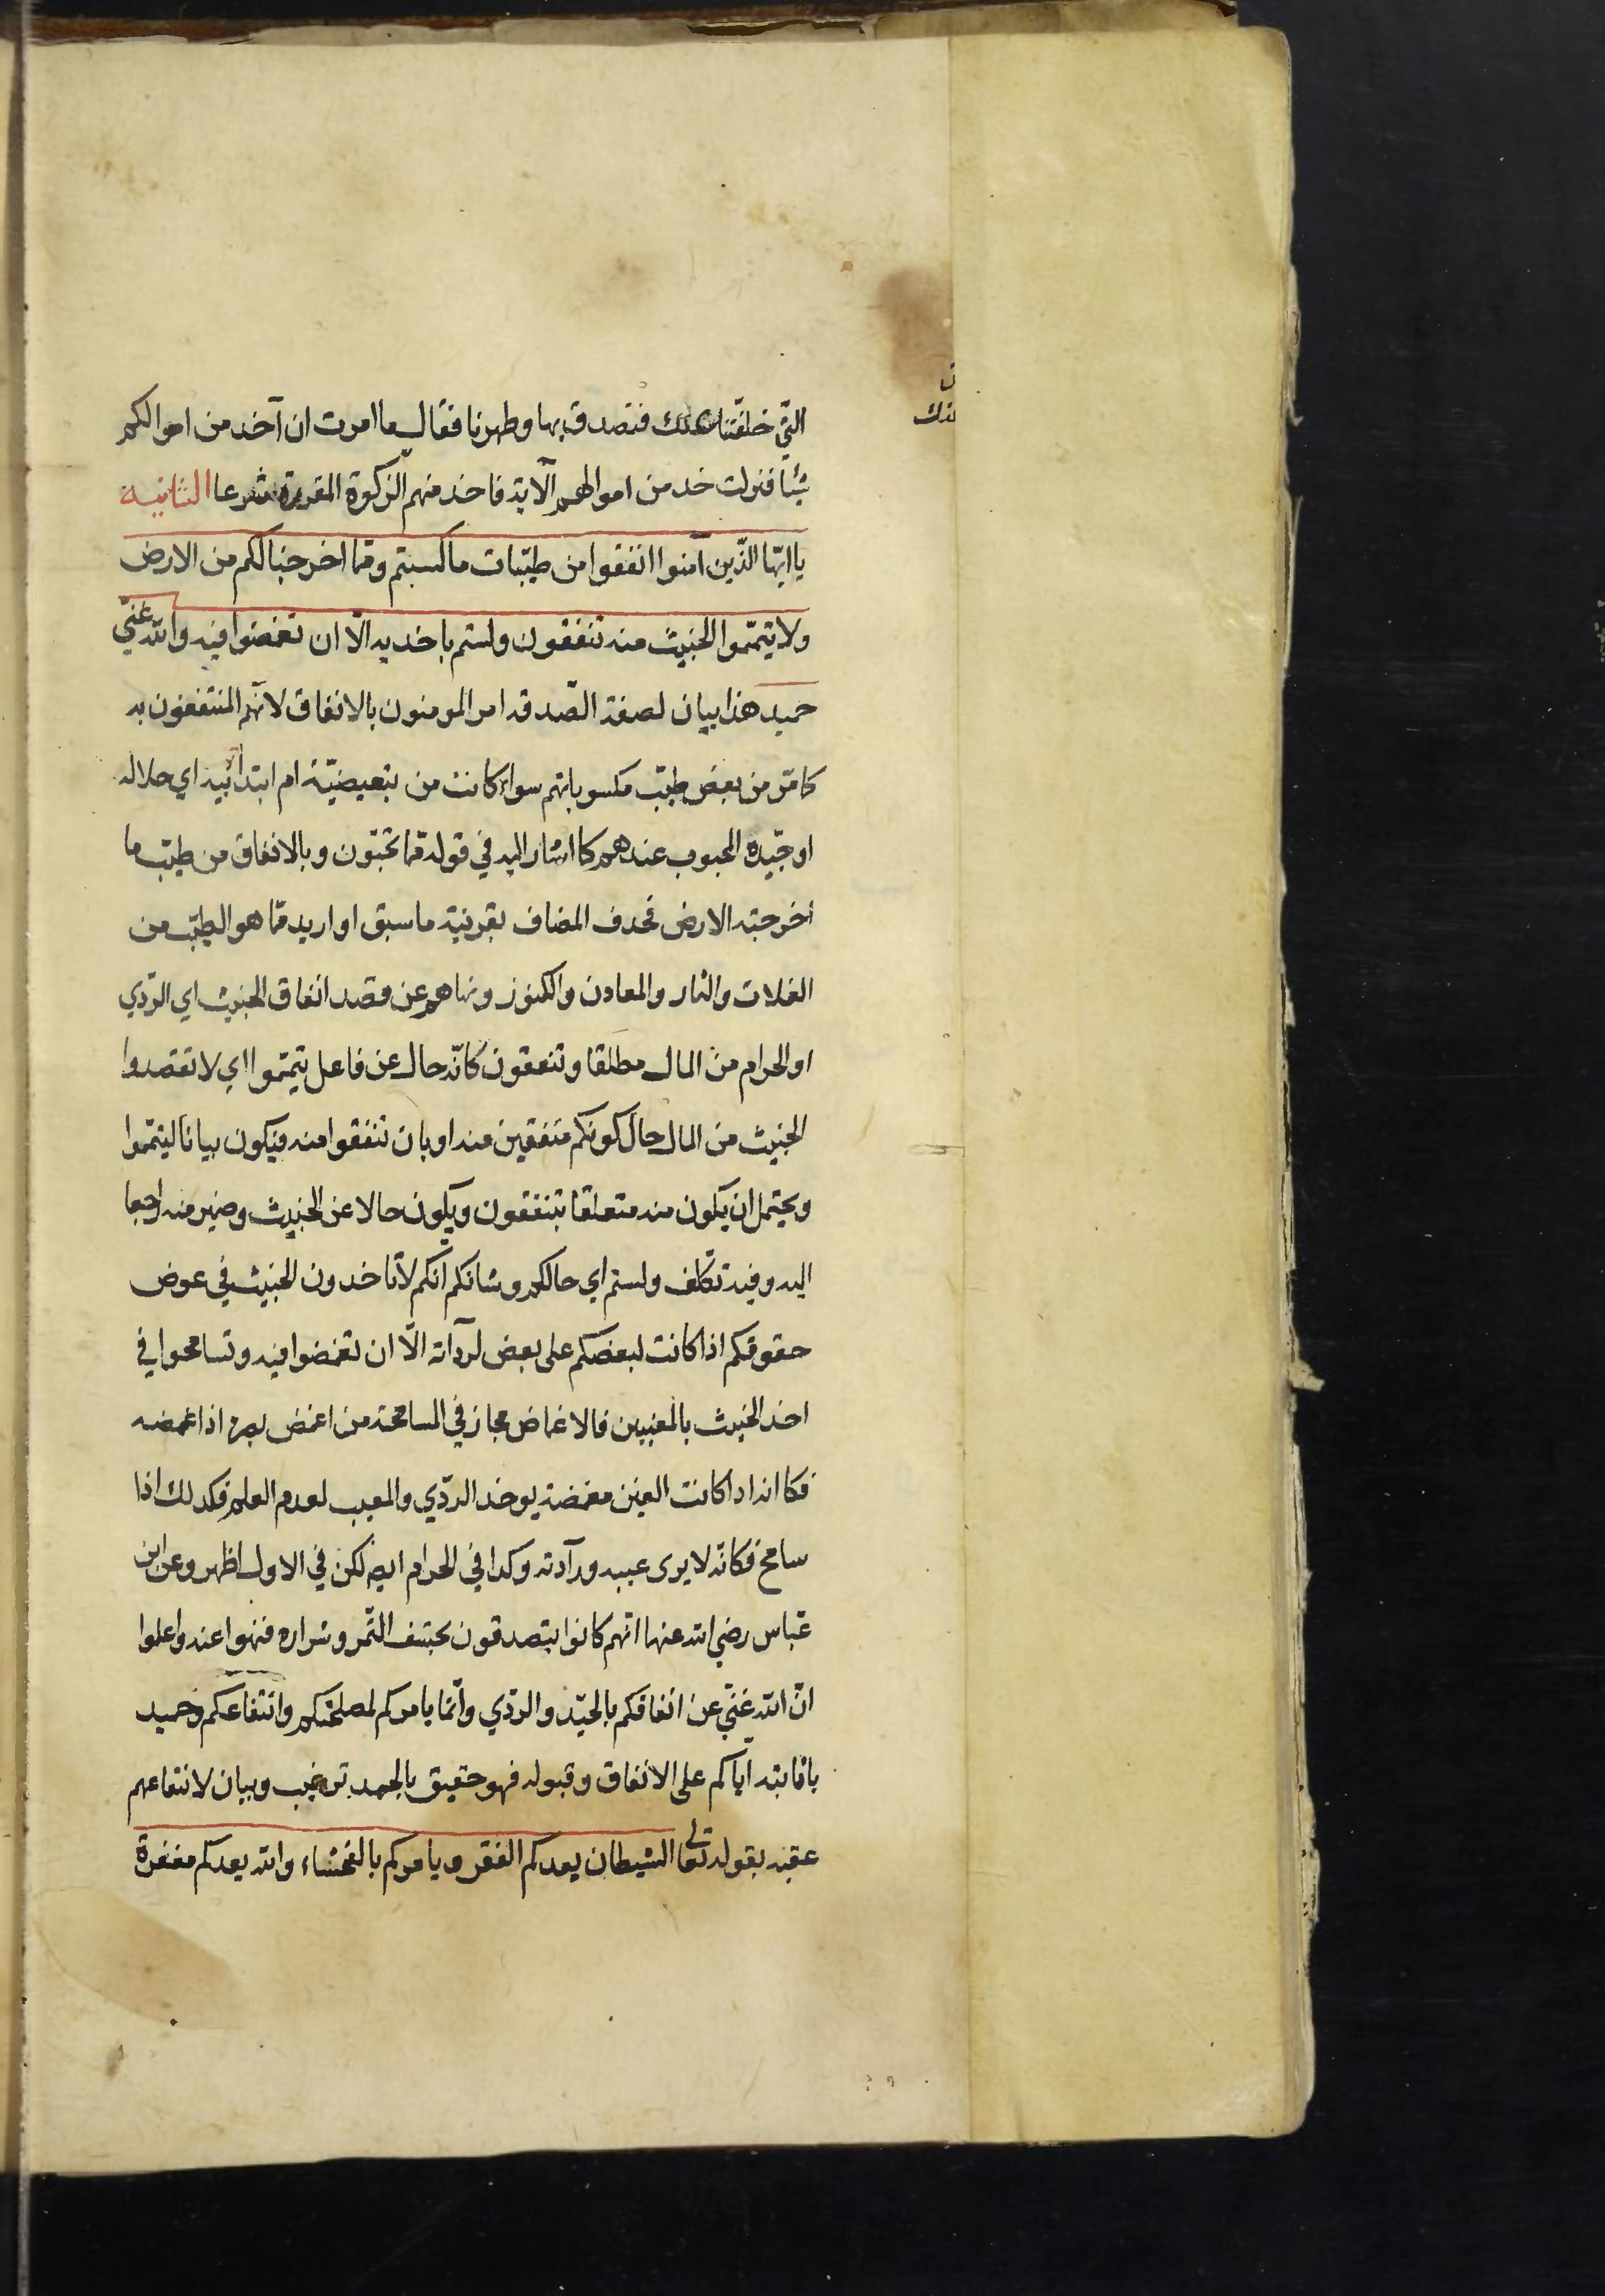 التي خلفتنا عنك فتصدق بها وطهرنا فقال ما امرت ان آخذ من اموالكم
شيئا فنزلت خذ من اموالهم الآية فاخذ منهم الزكوة المقررة شرعا الثانية
يا ايها الذين آمنوا انفقوا من طيبات ما كسبتم ومما اخرجنا لكم من الارض
ولا تيمموا الخبيث منه تنفقون ولستم باخذيه الا ان تغمضوا فيه والله غني
حميد هذا بيان لصفة الصدقة امر المومنون بالانفاق لانهم المنتفعون به
كامر من بعض طيب مكسوباتهم سواء كانت من تبعيضية ام ابتدائيه اي حلاله
او جيده المحبوب عندهم كما اشار اليه في قوله مما تحبون وبالانفاق من طيب ما
اخرجته الارض فحذف المضاف بقرينة ما سبق او اريد مما هو الطيب من
الغلات والثمار والمعادن والكنوز ونهاهم عن قصد انفاق الخبيث اي الردي
او الحرام من المال مطلقا وتنفقون كانه حال عن فاعل تيمموا اي لا تقصدوا
الخبيث من المال حال كونكم منفقين منه او بان تنفقوا منه فيكون بيانا لتيمموا
ويحتمل ان يكون منه متعلقا بتنفقون ويكون حالا عن الخبيث وضمير منه راجعا
اليه وفيه تكلف ولستم اي حالكم وشانكم انكم لا تاخذون الخبيث في عوض
حقوقكم اذا كانت لبعضكم على بعض لردآته الا ان تغمضوا فيه وتسامحوا في
اخذ الخبيث بالمعنيين فالاغماض مجاز في المسامحة من اغمض بصره اذا غمضه
فكما انه اذا كانت العين مغمضة يوخذ الردي والمعيب لعدم العلم فكذلك اذا
سامح فكانه لا يرى عيبه وردآدته وكذا في الحرام ايضا لكن في الاول اظهر وعن ابن
عباس رضي الله عنهما انهم كانوا يتصدقون بحشف التمر وشراره فنهوا عنه واعلموا
ان الله غني عن انفاقكم بالجيد والردي وانما يامركم لمصلحتكم وانتفاعكم وحميد
باثابته اياكم على الانفاق وقبوله فهو حقيق بالحمد ترغيب وبيان لانتفاعهم
عقبه بقوله تعالى الشيطان يعدكم الفقر ويامركم بالفحشاء والله يعدكم مغفرة